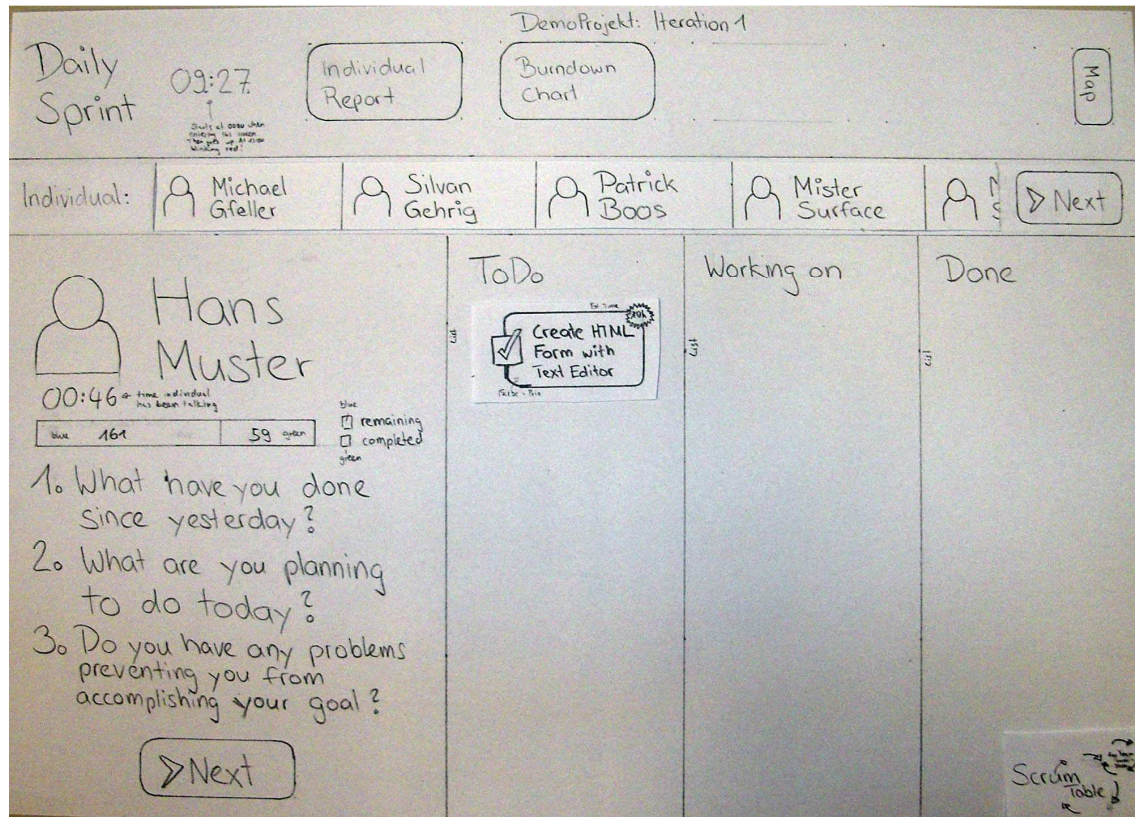 DemoProjekt: Iteration 1
Daily
Sprint
09:27
Starts at 00:00 when
entering this screen
Then goes up At 15:00
blinking red!
Individual
Report
Burndown
Chart
Map
Individual:
Michael
Gfeller
Silvan
Gehrig
Patrick
Boos
Mister
Surface
Next
Hans
Muster
00:46
time individual
has been talking
blue 161
59 green
blue
remaining
completed
green
1. What have you done
since yesterday?
2. What are you planning
to do today?
3. Do you have any problems
preventing you from
accomplishing your goal?
Next
ToDo
Est. Time
Create HTML
Form with
Text Editor
Farbe = Prio
Working on
Done
Scrum
Table